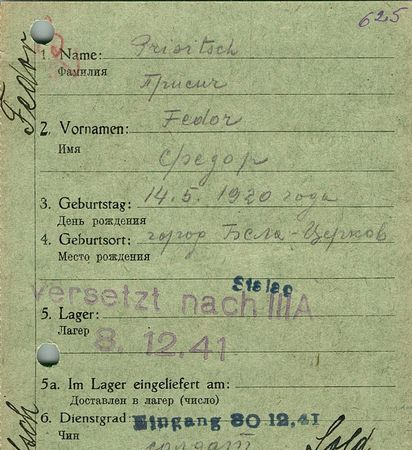 625
1. Name: Prisitsch
Фамилия
Присич
2. Vornamen: Fedor
Имя
Федор
3. Geburtstag: 14.5.1920 года
День рождения
4. Geburtsort: город Бела-Церков
Место рождения
Stalag
versetzt nach IIIA
5. Lager:
Лагерь
8. 12. 41
5a. Im Lager eingeliefert am:
Доставлен в лагерь (число)
6. Dienstgrad: Eingang 30 12. 41
Чин
солдат
Sold
Fedor